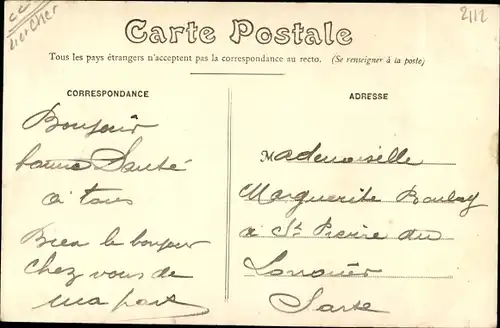 Loir et Cher
2112
Carte Postale
Tous les pays étrangers n'acceptent pas la correspondance au recto. (Se renseigner à la poste)
CORRESPONDANCE
Bonjour
bonne Santé
a tous
Bien le bonjour
chez vous de
ma part
ADRESSE
Mademoiselle
Marguerite Boulay
a St Pierre du
Lorouër
Sarthe